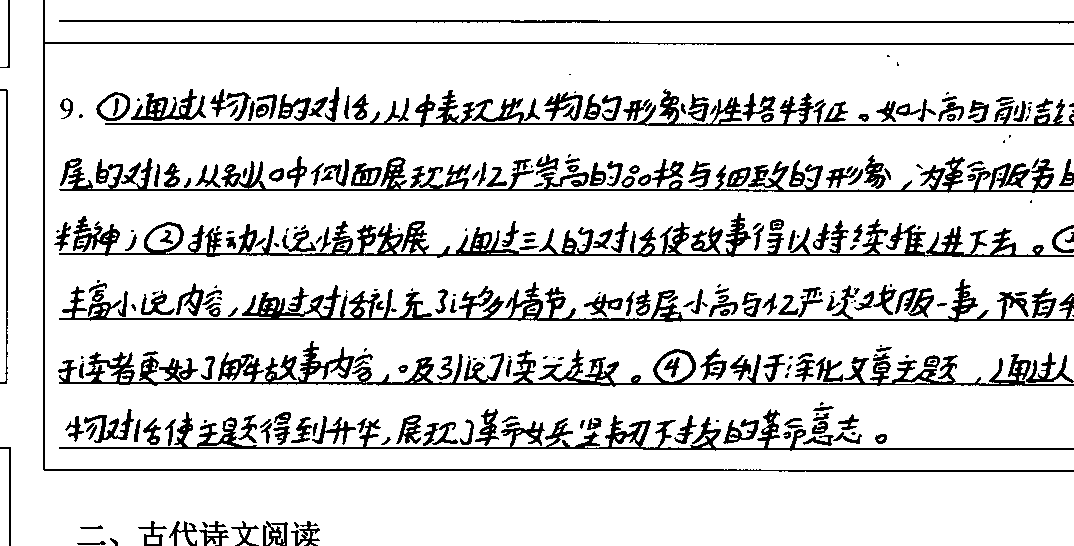 9. ①通过人物间的对话,从中表现出人物的形象与性格特征。如小高与前洁结
尾的对话,从别人口中侧面展现出忆严崇高的品格与细致的形象,为革命服务的
精神;②推动小说情节发展,通过三人的对话使故事得以持续推进下去。③
丰富小说内容,通过对话补充了许多情节,如结尾小高与忆严谈戏服一事,有利
于读者更好了解故事内容,吸引读趣。④有利于深化文章主题,通过人
物对话使主题得到升华,展现了革命女兵坚韧不拔的革命意志。
二、古代诗文阅读